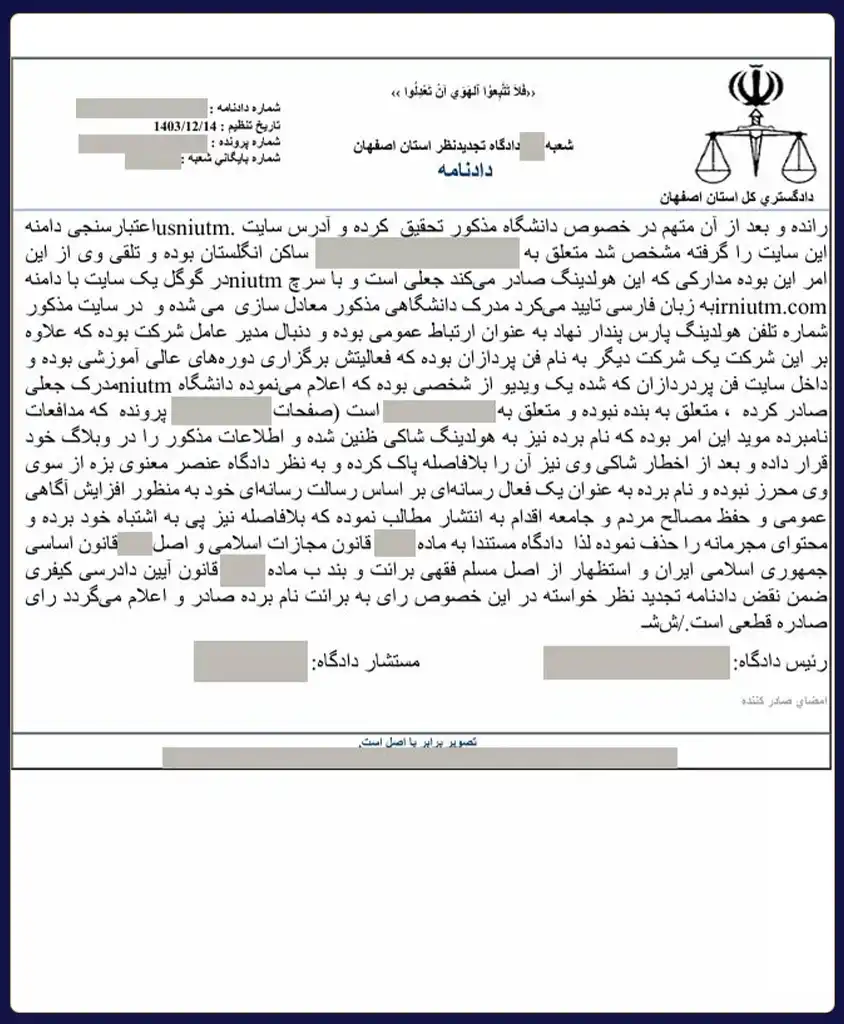 ‹‹فَلاَ تَتَّبِعوُا اَلهَوَي اَنْ تَعْدِلُوا ››
شماره دادنامه :
تاریخ تنظیم : 1403/12/14
شماره پرونده :
شماره بایگاني شعبه :
شعبه دادگاه تجدیدنظر استان اصفهان
دادنامه
دادگستري کل استان اصفهان
رانده و بعد از آن متهم در خصوص دانشگاه مذکور تحقیق کرده و آدرس سایت .usniutmاعتبارسنجی دامنه
این سایت را گرفته مشخص شد متعلق به ساکن انگلستان بوده و تلقی وی از این
امر این بوده مدارکی که این هولدینگ صادر می‌کند جعلی است و با سرچ niutmدر گوگل یک سایت با دامنه
irniutm.comبه زبان فارسی تایید می‌کرد مدرک دانشگاهی مذکور معادل سازی می شده و در سایت مذکور
شماره تلفن هولدینگ پارس پندار نهاد به عنوان ارتباط عمومی بوده و دنبال مدیر عامل شرکت بوده که علاوه
بر این شرکت یک شرکت دیگر به نام فن پردازان بوده که فعالیتش برگزاری دوره‌های عالی آموزشی بوده و
داخل سایت فن پردردازان که شده یک ویدیو از شخصی بوده که اعلام می‌نموده دانشگاه niutmمدرک جعلی
صادر کرده ، متعلق به بنده نبوده و متعلق به است (صفحات پرونده که مدافعات
نامبرده موید این امر بوده که نام برده نیز به هولدینگ شاکی ظنین شده و اطلاعات مذکور را در وبلاگ خود
قرار داده و بعد از اخطار شاکی وی نیز آن را بلافاصله پاک کرده و به نظر دادگاه عنصر معنوی بزه از سوی
وی محرز نبوده و نام برده به عنوان یک فعال رسانه‌ای بر اساس رسالت رسانه‌ای خود به منظور افزایش آگاهی
عمومی و حفظ مصالح مردم و جامعه اقدام به انتشار مطالب نموده که بلافاصله نیز پی به اشتباه خود برده و
محتوای مجرمانه را حذف نموده لذا دادگاه مستندا به ماده قانون مجازات اسلامی و اصل قانون اساسی
جمهوری اسلامی ایران و استظهار از اصل مسلم فقهی برائت و بند ب ماده قانون آیین دادرسی کیفری
ضمن نقض دادنامه تجدید نظر خواسته در این خصوص رای به برائت نام برده صادر و اعلام می‌گردد رای
صادره قطعی است./ش‌شـ
رئیس دادگاه: مستشار دادگاه:
امضاي صادر کننده
تصویر برابر با اصل است.